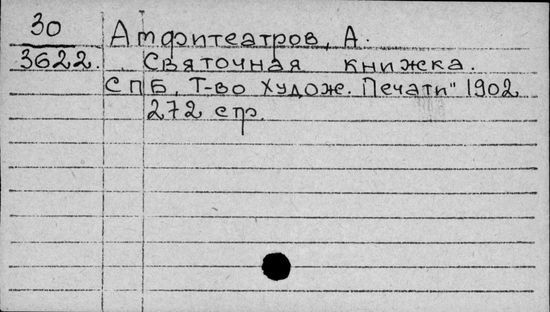 30 Амфитеатров, А.
3622. Святочная книжка.
СПБ, Т-во Худож. Печати" 1902
272 стр.